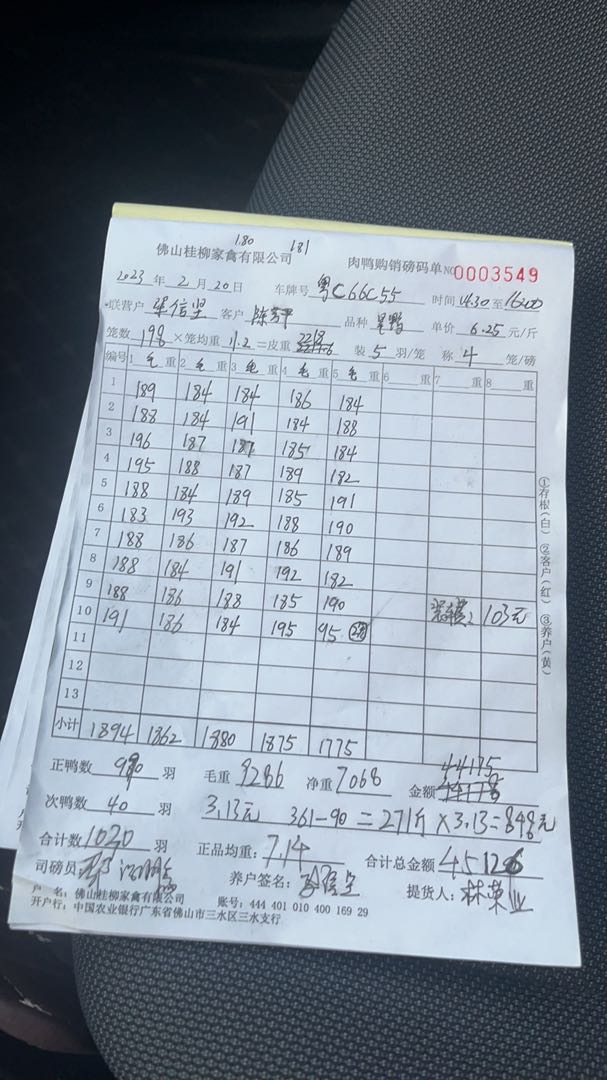 180 181
佛山桂柳家禽有限公司 肉鸭购销磅码单 NO 0003549
2023 年 2 月 20 日 车牌号 粤C66C55 时间 14:30 至 16:00
联营户 梁信坚 客户 品种 单价 6.25 元/斤
笼数 198 × 笼均重 11.2 =皮重 装 5 羽/笼 称 4 笼/磅
编号 1 毛 重 2 毛 重 3 毛 重 4 毛 重 5 毛 重 6 重 7 重 8 重
1 189 184 184 186 184
2 188 184 191 184 188
3 196 187 187 185 184
4 195 188 187 189 182
5 188 184 189 185 191
6 183 193 192 188 190
7 188 186 187 186 189
8 188 184 191 192 182
9 188 186 188 185 190 103元
10 191 186 184 195 95
11
12
13
小计 1894 1862 1880 1875 1775
①存根(白) ②客户(红) ③养户(黄)
44175
正鸭数 980 羽 毛重 9286 净重 7068 金额
次鸭数 40 羽 3.13元 361-90=271斤×3.13=848元
合计数 1020 羽 正品均重: 7.14 合计总金额 45126
司磅员 养户签名: 提货人: 林荣业
户 名: 佛山桂柳家禽有限公司 账号: 444 401 010 400 169 29
开户行: 中国农业银行广东省佛山市三水区三水支行